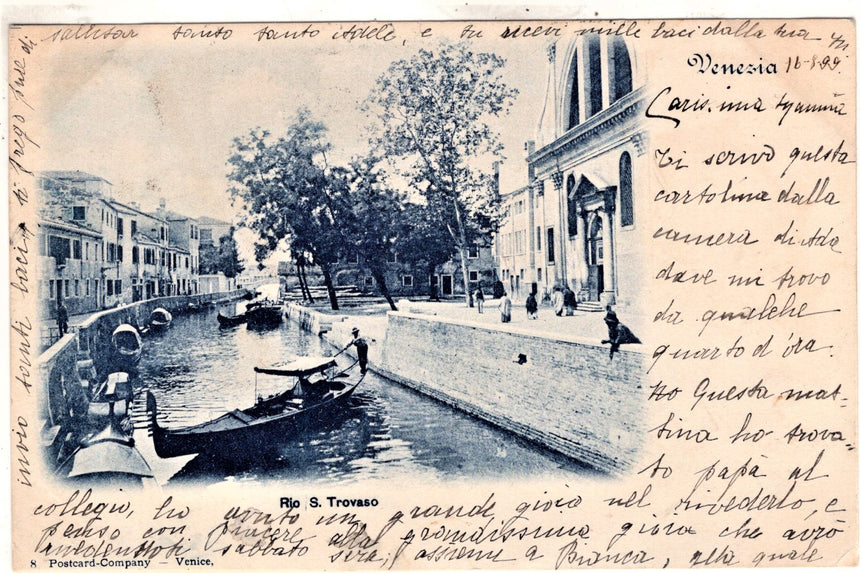 Venezia 16-8-99.
Cariss.ima
Ti scrivo questa
cartolina dalla
camera di Ada
dove mi trovo
da qualche
quarto d'ora.
Questa mat-
tina ho trova-
to papà al
collegio, ho avuto un grande gioia nel rivederlo, e
penso con piacere alla grandissima gioia che avrò
rivedendoti sabbato sera, assieme a Bianca, alla quale
invio tanti baci. ti prego pure di
salutar tanto tanto Adele, e tu ricevi mille baci dalla tua
Rio S. Trovaso
8 Postcard-Company – Venice,